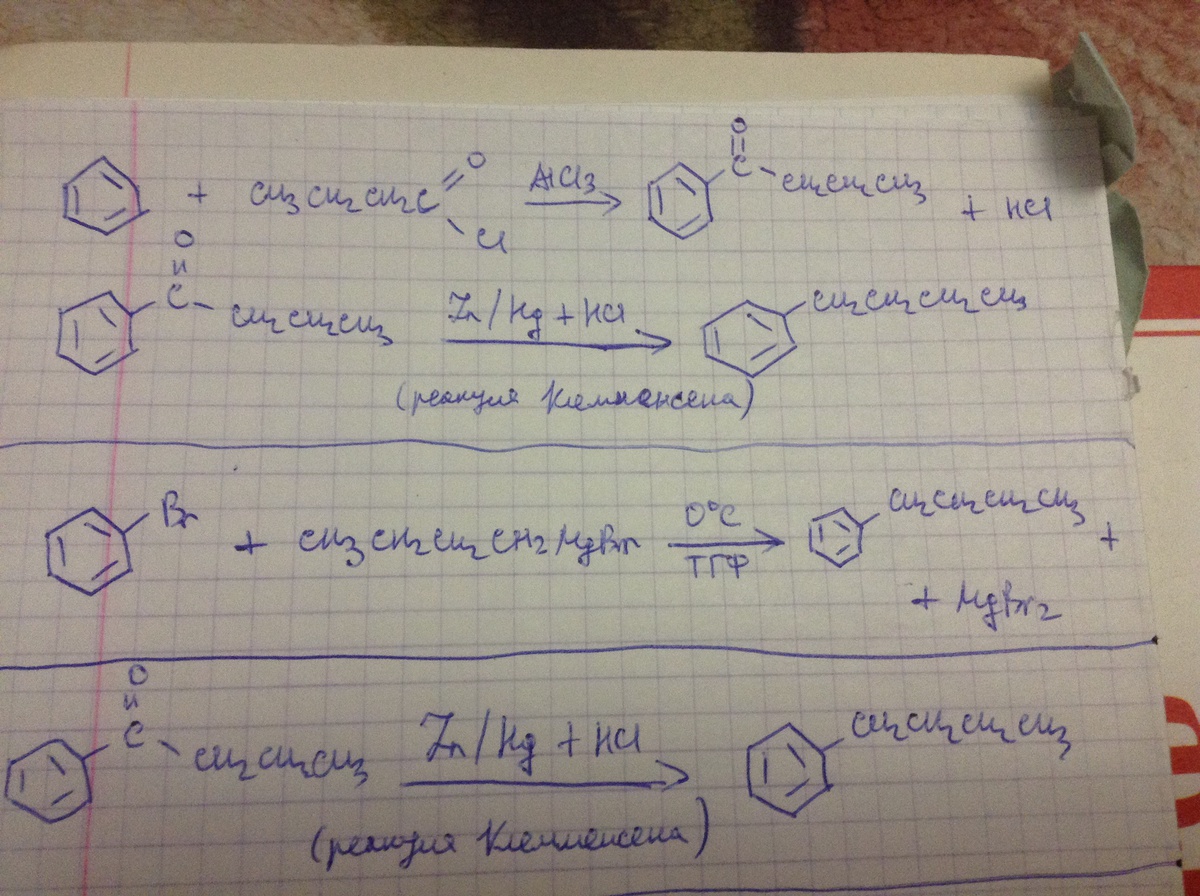 O
+ CH3CH2CH2C O AlCl3 C CH2CH2CH3 + HCl
Cl
O
C CH2CH2CH3 Zn/Hg + HCl CH2CH2CH2CH3
(реакция Клемменсена)
Br + CH3CH2CH2CH2MgBr 0°C CH2CH2CH2CH3 +
ТГФ
+ MgBr2
O
C CH2CH2CH3 Zn/Hg + HCl CH2CH2CH2CH3
(реакция Клемменсена)